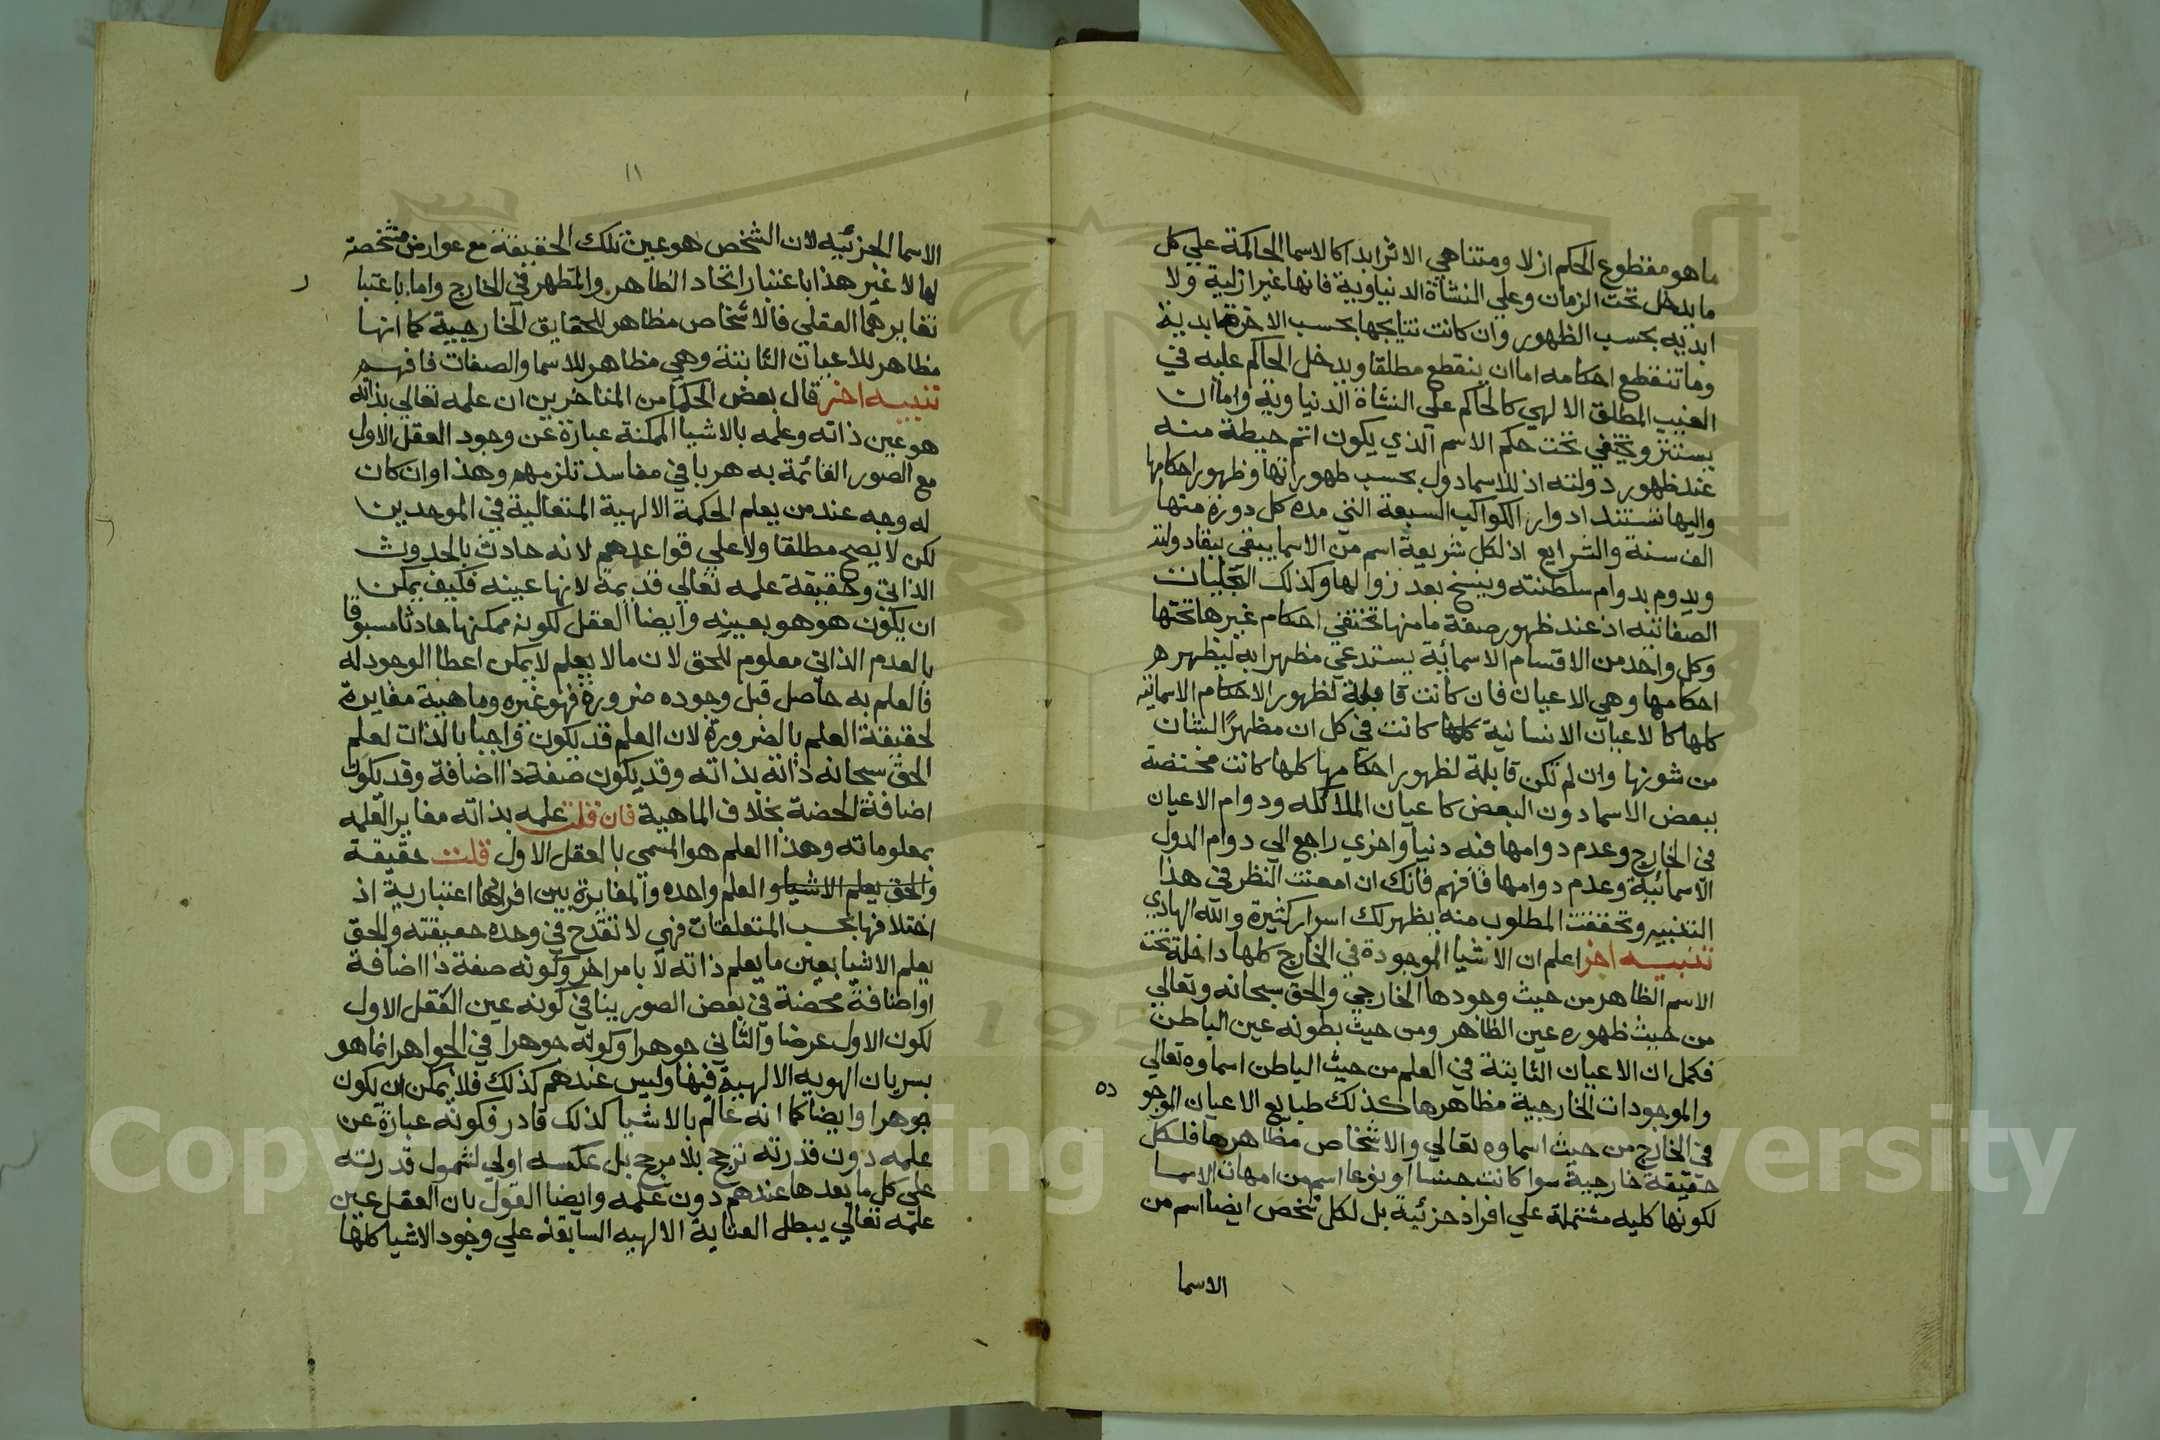 ما هو مقطوع الحكم ازلا ومتناهي الاثر ابدا كالاسما الحاكمة علي كل
ما يدخل تحت الزمان وعلي النشاة الدنياوية فانها غير ازلية ولا
ابديه بحسب الظهور وان كانت نتايجها بحسب الاخرة ابدية
وما تنقطع احكامه اما ان ينقطع مطلقا ويدخل الحاكم عليه في
الغيب المطلق الالهي كالحاكم علي النشاة الدنياوية واما ان
يستتر ويختفي تحت حكم الاسم الذي يكون اتم حيطة منه
عند ظهور دولته اذ للاسما دول بحسب ظهوراتها وظهور احكامها
واليها تستند ادوار الكواكب السبعة التي مدة كل دورة منها
الف سنة والشرايع اذ لكل شريعة اسم من الاسما يبقي ببقا دولته
ويدوم بدوام سلطنته وينسخ بعد زوالها وكذلك التجليات
الصفاتيه اذ عند ظهور صفة ما منها تختفي احكام غيرها تحتها
وكل واحد من الاقسام الاسمائية يستدعي مظهرا به ليظهر
احكامها وهي الاعيان فان كانت قابلة لظهور الاحكام الاسمائية
كلها كالاعيان الانسانية كلها كانت في كل ان مظهرا لشان
من شونها وان لم تكن قابلة لظهور احكامها كلها كانت مختصة
ببعض الاسما دون البعض كاعيان الملائكه ودوام الاعيان
في الخارج وعدم دوامها فيه دنيا واخري راجع الي دوام الدول
الاسمائية وعدم دوامها فافهم فانك ان امعنت النظر في هذا
التنبيه وتحققت المطلوب منه يظهر لك اسرار كثيرة والله الهادي
تنبيه اخر اعلم ان الاشيا الموجودة في الخارج كلها داخلة تحت
الاسم الظاهر من حيث وجودها الخارجي والحق سبحانه وتعالي
من حيث ظهوره عين الظاهر ومن حيث بطونه عين الباطن
فكمل ان الاعيان الثابتة في العلم من حيث الباطن اسماوه تعالي
والموجودات الخارجية مظاهرها كذلك طبايع الاعيان الموجو
ده
في الخارج من حيث اسماوه تعالي والاشخاص مظاهرها فلكل
حقيقة خارجية سوا كانت جنسا او نوعا اسم من امهات الاسما
لكونها كليه مشتملة علي افراد جزئية بل لكل شخص ايضا اسم من
الاسما
١١
الاسما الجزئيه لان الشخص هو عين تلك الحقيقة مع عوارض مشخصة
لها لا غير هذا باعتبار اتحاد الظاهر والمظهر في الخارج واما باعتبا
ر
تغايرهما العقلي فالاشخاص مظاهر للحقايق الخارجية كما انها
مظاهر للاعيان الثابتة وهي مظاهر للاسما والصفات فافهم
تنبيه اخر قال بعض الحكما من المتاخرين ان علمه تعالي بذاته
هو عين ذاته وعلمه بالاشيا الممكنة عبارة عن وجود العقل الاول
مع الصور القائمة به هربا في مفاسد تلزمهم وهذا وان كان
له وجه عند من يعلم الحكمة الالهية المتعالية في الموحدين
لكن لا يصح مطلقا ولا علي قواعدهم لانه حادث بالحدوث
الذاتي وحقيقة علمه تعالي قديمة لانها عينه فكيف يمكن
ان يكون هو هو بعينه وايضا العقل لكونه ممكنا حادثا مسبوقا
بالعدم الذاتي معلوم للحق لان ما لا يعلم لا يمكن اعطا الوجود له
فالعلم به حاصل قبل وجوده ضرورة فهو غيره وماهية مغايرة
لحقيقة العلم بالضرورة لان العلم قد يكون واجبا بالذات لعلم
الحق سبحانه ذاته بذاته وقد يكون صفة ذا اضافة وقد يكون
اضافة لحضة بخلاف الماهية فان قلت علمه بذاته مغاير العلمه
بمعلوماته وهذا العلم هو المسمي بالعقل الاول قلت حقيقة
والحق يعلم الاشيا والعلم واحده والمغايرة بين افرادها اعتبارية اذ
اختلافها بحسب المتعلقات فهي لا تقدح في وحدة حقيقته والحق
يعلم الاشيا بعين ما يعلم ذاته لا بامر اخر وكونه صفة ذا اضافة
او اضافة محضة في بعض الصور ينافي كونه عين العقل الاول
لكون الاول عرضا والثاني جوهرا وكونه جوهرا في الجواهر انما هو
بسريان الهويه الالهية فيها وليس عندهم كذلك فلا يمكن ان يكون
جوهرا وايضا كما انه عالم بالاشيا كذلك قادر فكونه عبارة عن
علمه دون قدرته ترجح بلا مرجح بل عكسه اولي لشمول قدرته
علي كل ما بعدها عندهم دون علمه وايضا القول بان العقل عين
علمه تعالي يبطل العناية الالهيه السابقة علي وجود الاشيا كلها
Copyright © King Saud University